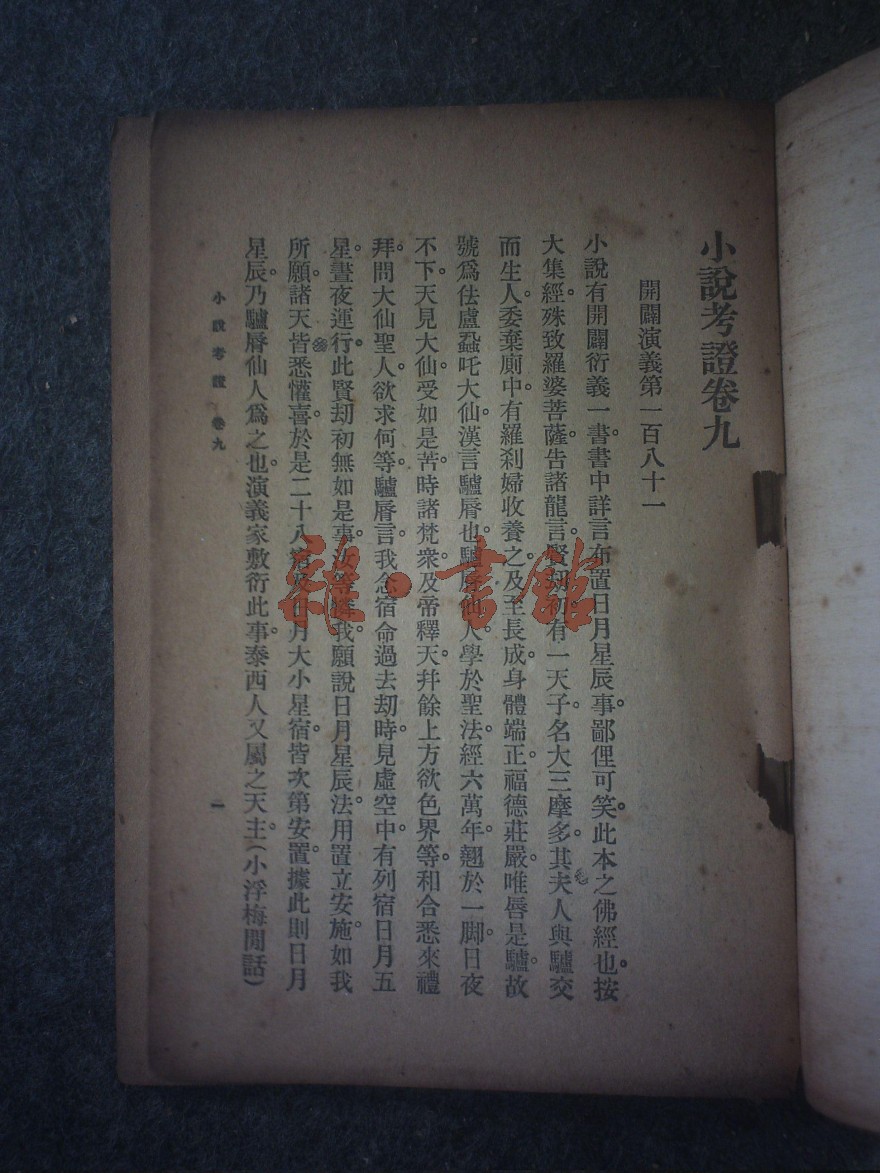 小說考證卷九
開闢演義第一百八十一
小說有開闢衍義一書書中詳言布置日月星辰事鄙俚可笑。此本之佛經也。按
大集經。殊致羅婆菩薩告諸龍言。賢劫初有一天子名大三摩多。其夫人與驢交
而生人。委棄廁中。有羅刹婦收養之。及至長成。身體端正。福德莊嚴。唯唇是驢。故
號爲佉盧蝨吒大仙。漢言驢脣也。驢脣仙人學於聖法。經六萬年。翹於一脚。日夜
不下。天見大仙受如是苦。時諸梵衆及帝釋天。幷餘上方欲色界等。和合悉來禮
拜。問大仙聖人。欲求何等。驢脣言。我念宿命過去劫時。見虛空中。有列宿日月五
星。晝夜運行。此賢劫初無如是事。汝等憐我。願說日月星辰法。用置立安施。如我
所願。諸天皆悉懽喜。於是二十八宿及日月大小星宿。皆次第安置。據此則日月
星辰。乃驢脣仙人爲之也。演義家敷衍此事。泰西人又屬之天主。(小浮梅閒話)
小說考證 卷九
一
雜·書館